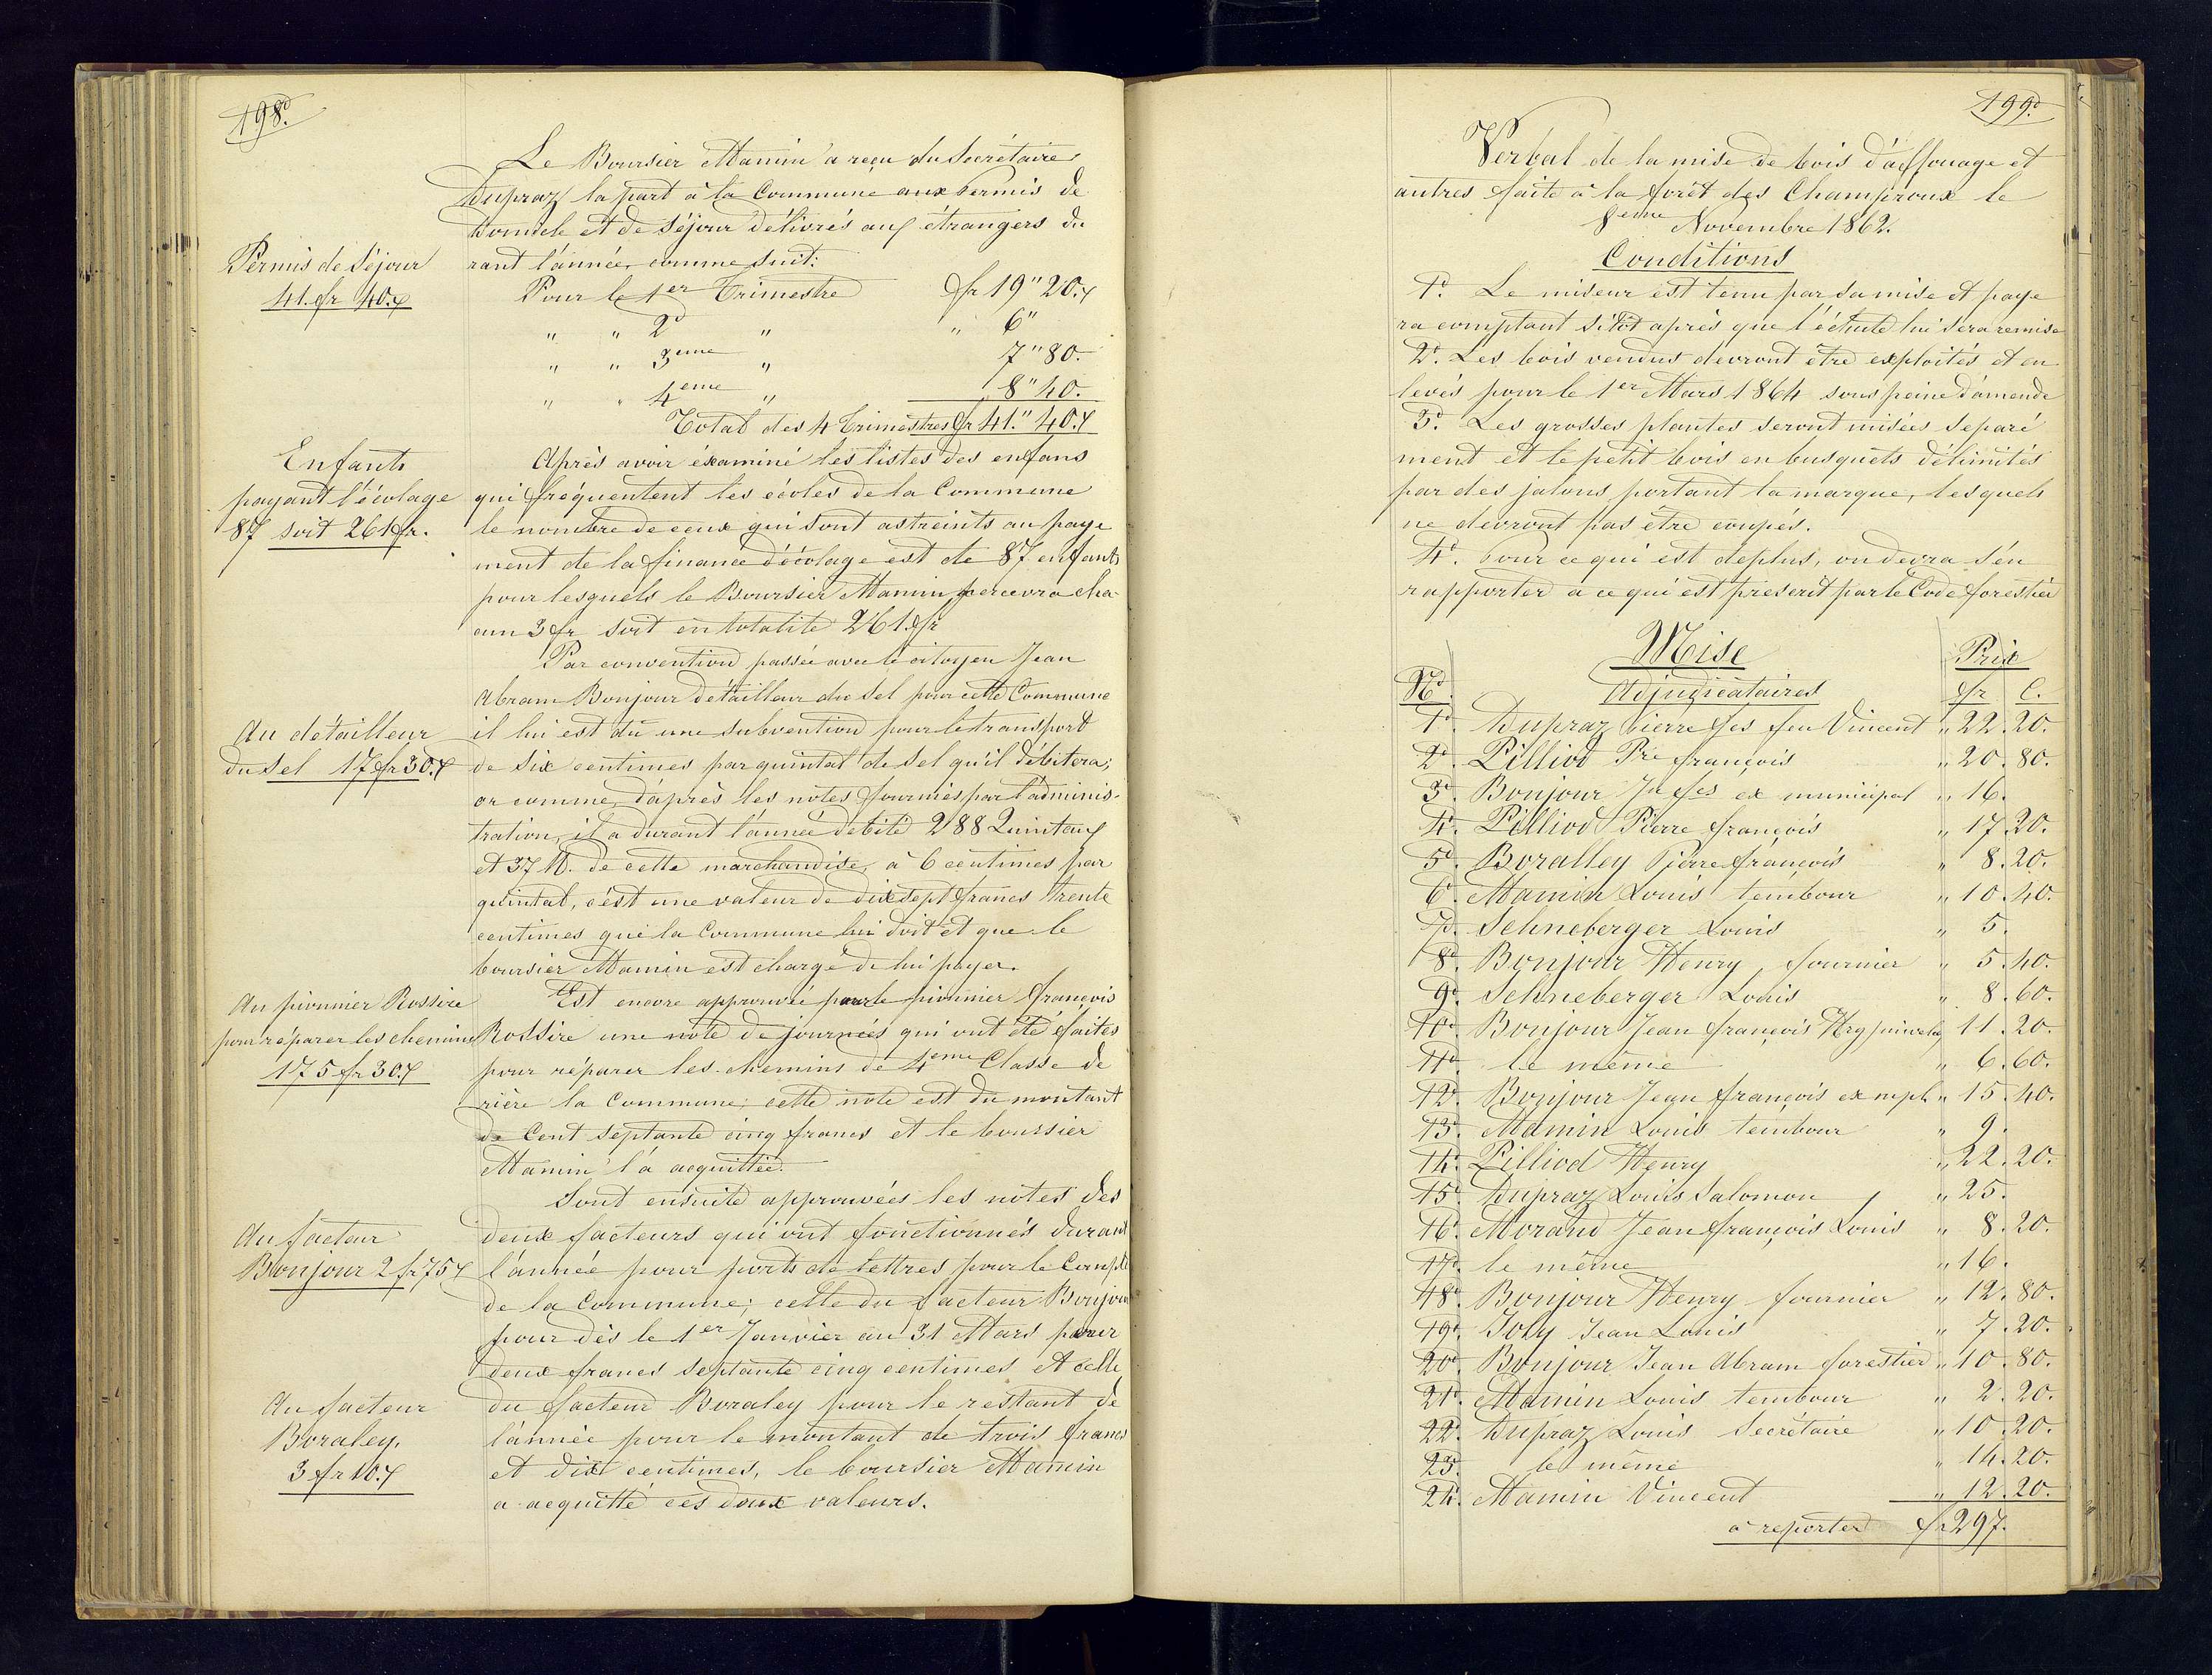 198.
Le Boursier Mamin a reçu du Secrétaire
Dupraz la part à la Commune aux permis de
Domicile et de Séjour délivrés aux étrangers du
rant l'année, comme suit:
Permis de Séjour
41 fr 40.
Pour le 1er Trimestre fr 19" 20.
" " 2d " " 6"
" " 3eme " 7" 80.
" " 4eme " 8" 40.
Total des 4 Trimestres fr 41." 40.
Enfants
payant l'écolage
87 soit 261 fr.
Après avoir éxaminé les listes des enfans
qui fréquentent les écoles de la Commune
le nombre de ceux qui sont astreints au paye
ment de la finance d'écolage est de 87 enfants
pour lesquels le Boursier Mamin percevra cha-
cun 3 fr soit en totalité 261 fr
Par convention passée avec le citoyen Jean
Abram Bonjour détailleur du Sel pour cette Commune
Au détailleur
du Sel 17 fr 30.
il lui est dû une subvention pour le transport
de six centimes par quintal de Sel qu'il débitera;
or comme, d'après les notes fournies par l'adminis-
tration, il a durant l'année débité 288 Quintaux
et 37 lb. de cette marchandise, à 6 centimes par
quintal, c'est une valeur de dix sept francs trente
centimes que la Commune lui doit et que le
boursier Mamin est chargé de lui payer.
Au pionnier Rossire
pour réparer les chemins
175 fr 30.
Est encore approuvée pour le pionnier françois
Rossire une note de journées qui ont été faites
pour réparer les chemins de 4eme Classe de
rière la Commune; cette note est du montant
de Cent septante cinq francs et le boursier
Mamin l'a acquittée.
Sont ensuite approuvées les notes des
Au facteur
Bonjour 2 fr 75
deux facteurs qui ont fonctionnés durant
l'année pour ports de lettres pour le Compte
de la Commune; celle du facteur Bonjour
pour dès le 1er Janvier au 31 Mars pour
deux francs septante cinq centimes et celle
Au facteur
Boraley.
3 fr 10.
du facteur Boraley pour le restant de
l'année pour le montant de trois francs
et dix centimes, le boursier Mamin
a acquitté ces deux valeurs.
199.
Verbal de la mise de bois d'affouage et
autres faite à la forêt des Champroux le
8eme Novembre 1862.
Conditions
1º. Le miseur est tenu par sa mise et paye
ra comptant sitôt après que l'échute lui sera remise
2º. Les bois vendus devront être exploités et en
levés pour le 1er Mars 1864 sous peine d'amende
3º. Les grosses plantes seront misées separé
ment et le petit bois en busquets délimités
par des jalons portant la marque, lesquels
ne devront pas être coupés.
4º. Pour ce qui est deplus, on devra s'en
rapporter à ce qui est prescrit par le Code forestier
Mise Prix
No. Adjudicataires fr C.
1º. Dupraz Pierre fçs feu Vincent " 22. 20.
2º. Pilliod Pre françois " 20. 80.
3º. Bonjour Jn fçs ex municipal " 16.
4º. Pilliod Pierre françois " 17. 20.
5º. Boralley Pierre françois " 8. 20.
6º. Mamin Louis tembour " 10. 40.
7º. Schneberger Louis " 5.
8º. Bonjour Henry fournier " 5. 40.
9º. Schneberger Louis " 8. 60.
10º. Bonjour Jean françois Hry 11. 20.
11º. le même " 6. 60.
12º. Bonjour Jean françois ex mpl " 15. 40.
13º. Mamin Louis tembour " 9.
14º. Pilliod Henry " 22. 20.
15º. Dupraz Louis Salomon " 25.
16º. Morand Jean françois Louis " 8. 20.
17º. le même " 16.
18º. Bonjour Henry fournier " 12. 80.
19º. Joly Jean Louis " 7. 20.
20º. Bonjour Jean Abram forestier " 10. 80.
21º. Mamin Louis tembour " 2. 20.
22º. Dupraz Louis Secrétaire " 10. 20.
23º. le même " 14. 20.
24º. Mamin Vincent " 12. 20.
à reporter fr 297.